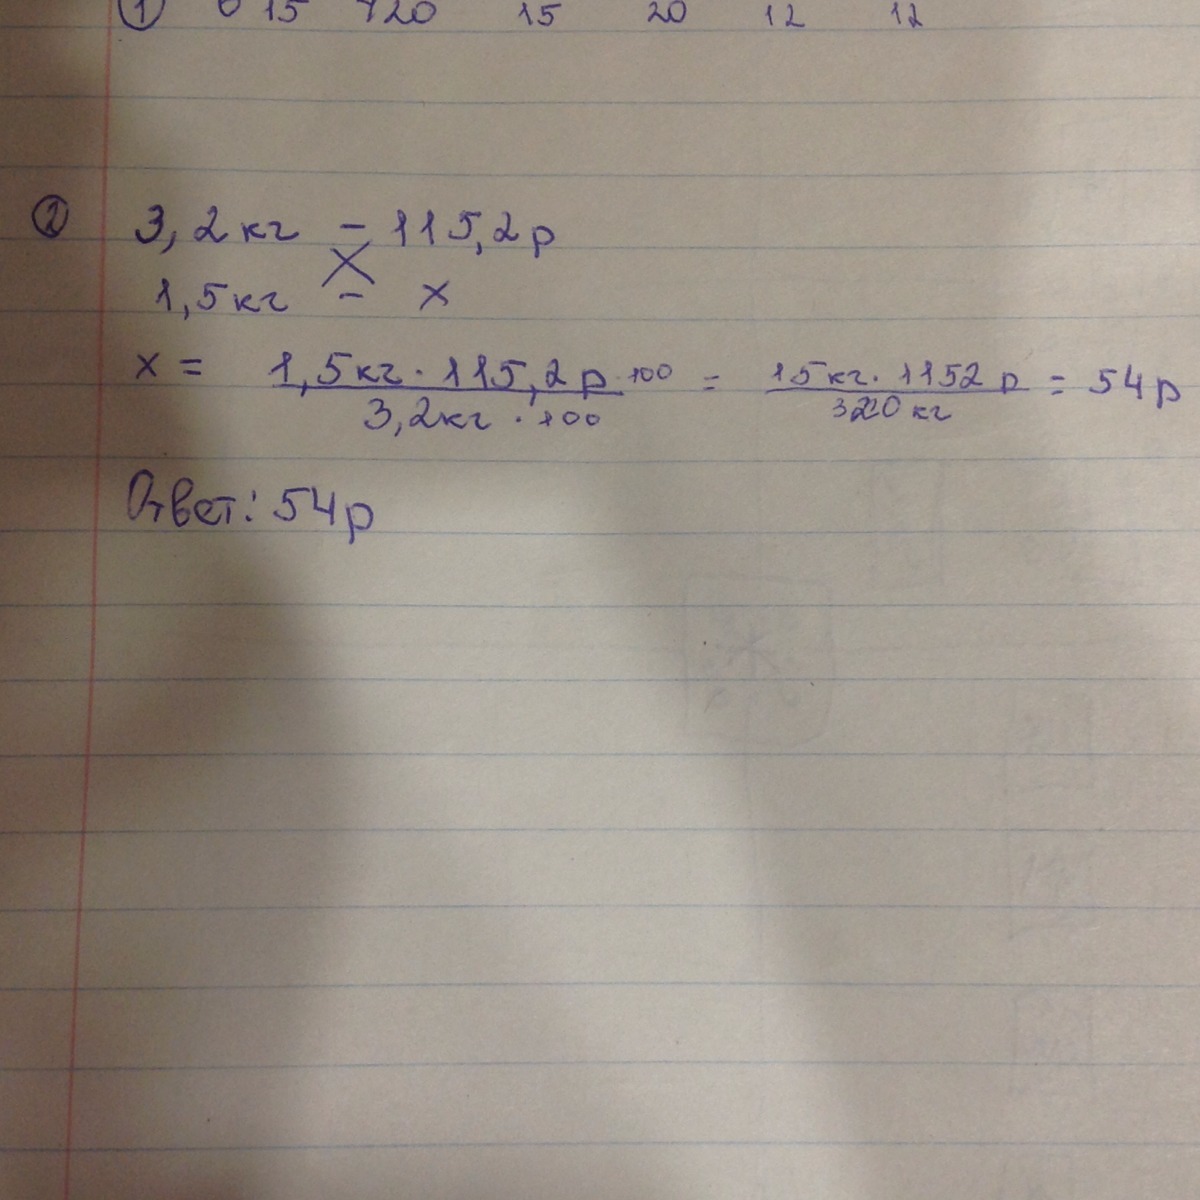 ① 6 15 720 15 20 12 12
② 3,2кг - 115,2р
1,5кг - х
х = 1,5кг · 115,2р · 100 / 3,2кг · 100 = 15кг · 1152 р / 320 кг = 54р
Ответ: 54р